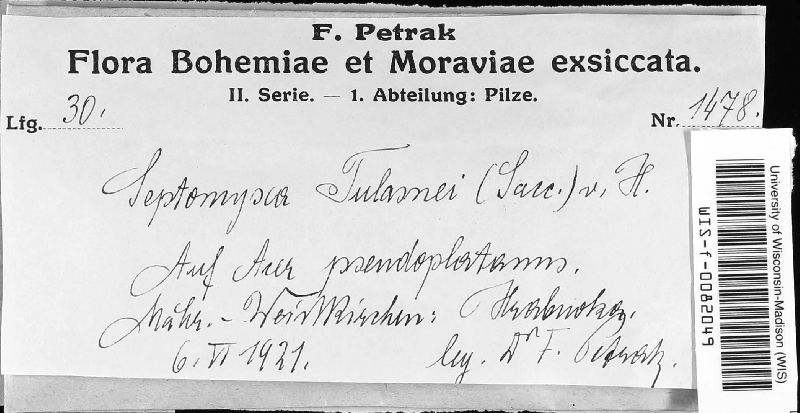 F. Petrak
Flora Bohemiae et Moraviae exsiccata.
II. Serie. — 1. Abteilung: Pilze.
Lfg. 30. Nr. 1478.
Septomyxa Tulasnei (Sacc.) v. H.
Auf Acer pseudoplatanus.
Mähr.-Weisskirchen: Hrabuvka.
6. VI 1921. leg. Dr F. Petrak.
University of Wisconsin-Madison (WIS)
WIS-f-0082049